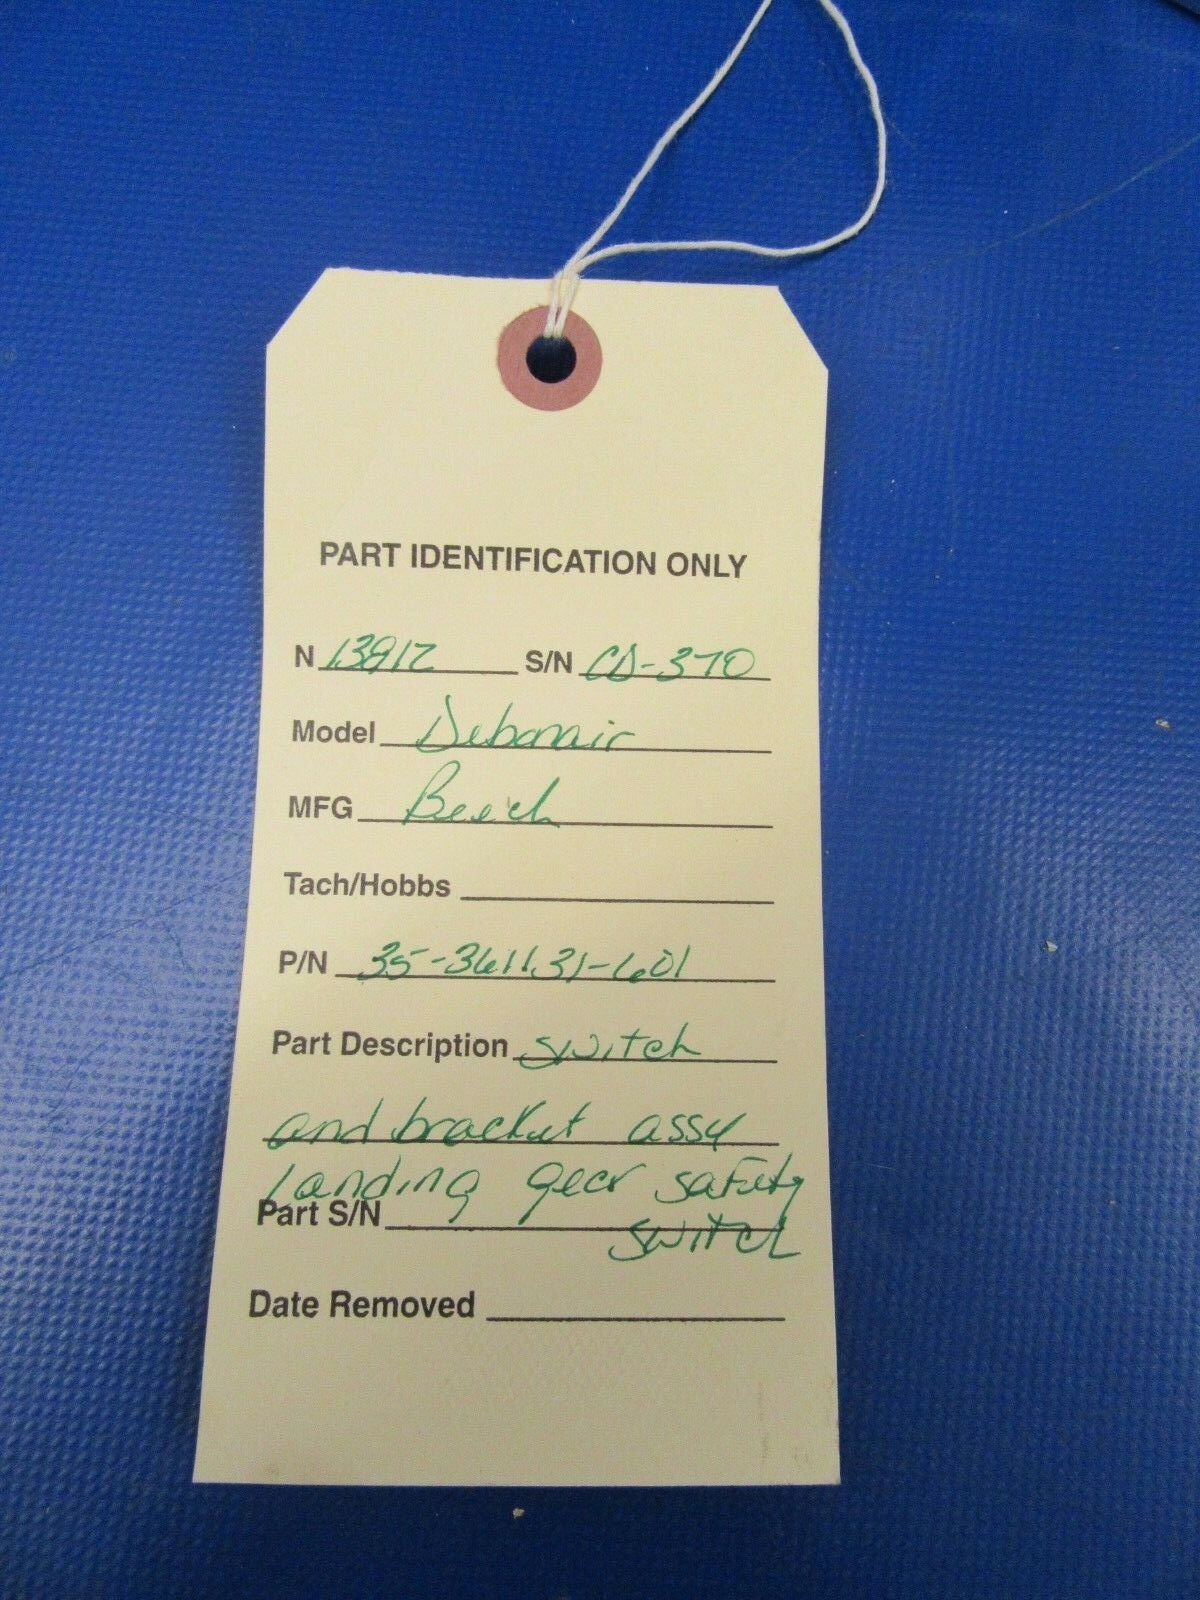 PART IDENTIFICATION ONLY
N 1391Z S/N CD-370
Model Debonair
MFG Beech
Tach/Hobbs
P/N 35-361131-601
Part Description switch
and bracket assy
landing gear safety
Part S/N
switch
Date Removed